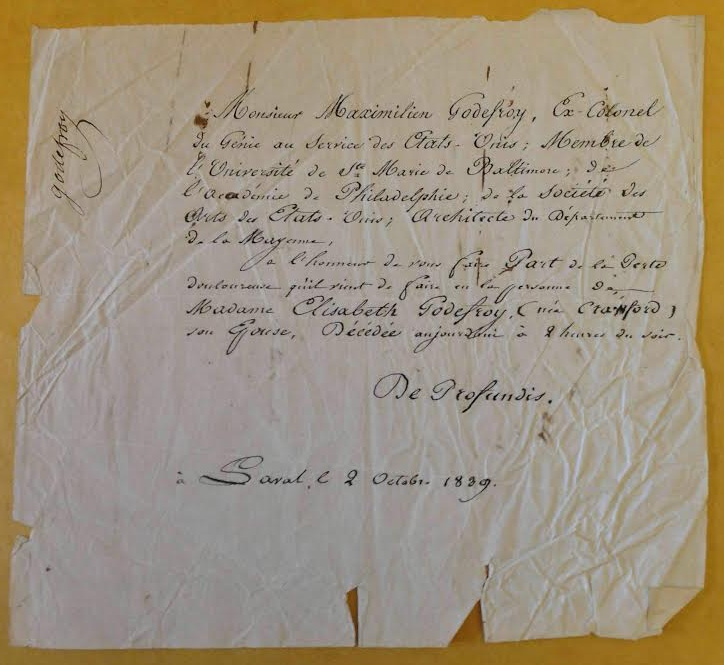 godefroy
Monsieur Maximilien Godefroy, Ex-Colonel
du Génie au Service des Etats-Unis; Membre de
l'Université de Ste Marie de Baltimore; de
l'académie de Philadelphie; de la Société des
Arts des Etats-Unis; Architecte du Département
de la Mayenne,
a l'honneur de vous faire Part de la Perte
douloureuse qu'il vient de faire en la personne de
Madame Elisabeth Godefroy, (née Crawford)
son Epouse, Décédée aujourdhui à 2 heures du soir.
De Profundis.
à Laval, le 2 Octobre 1839.